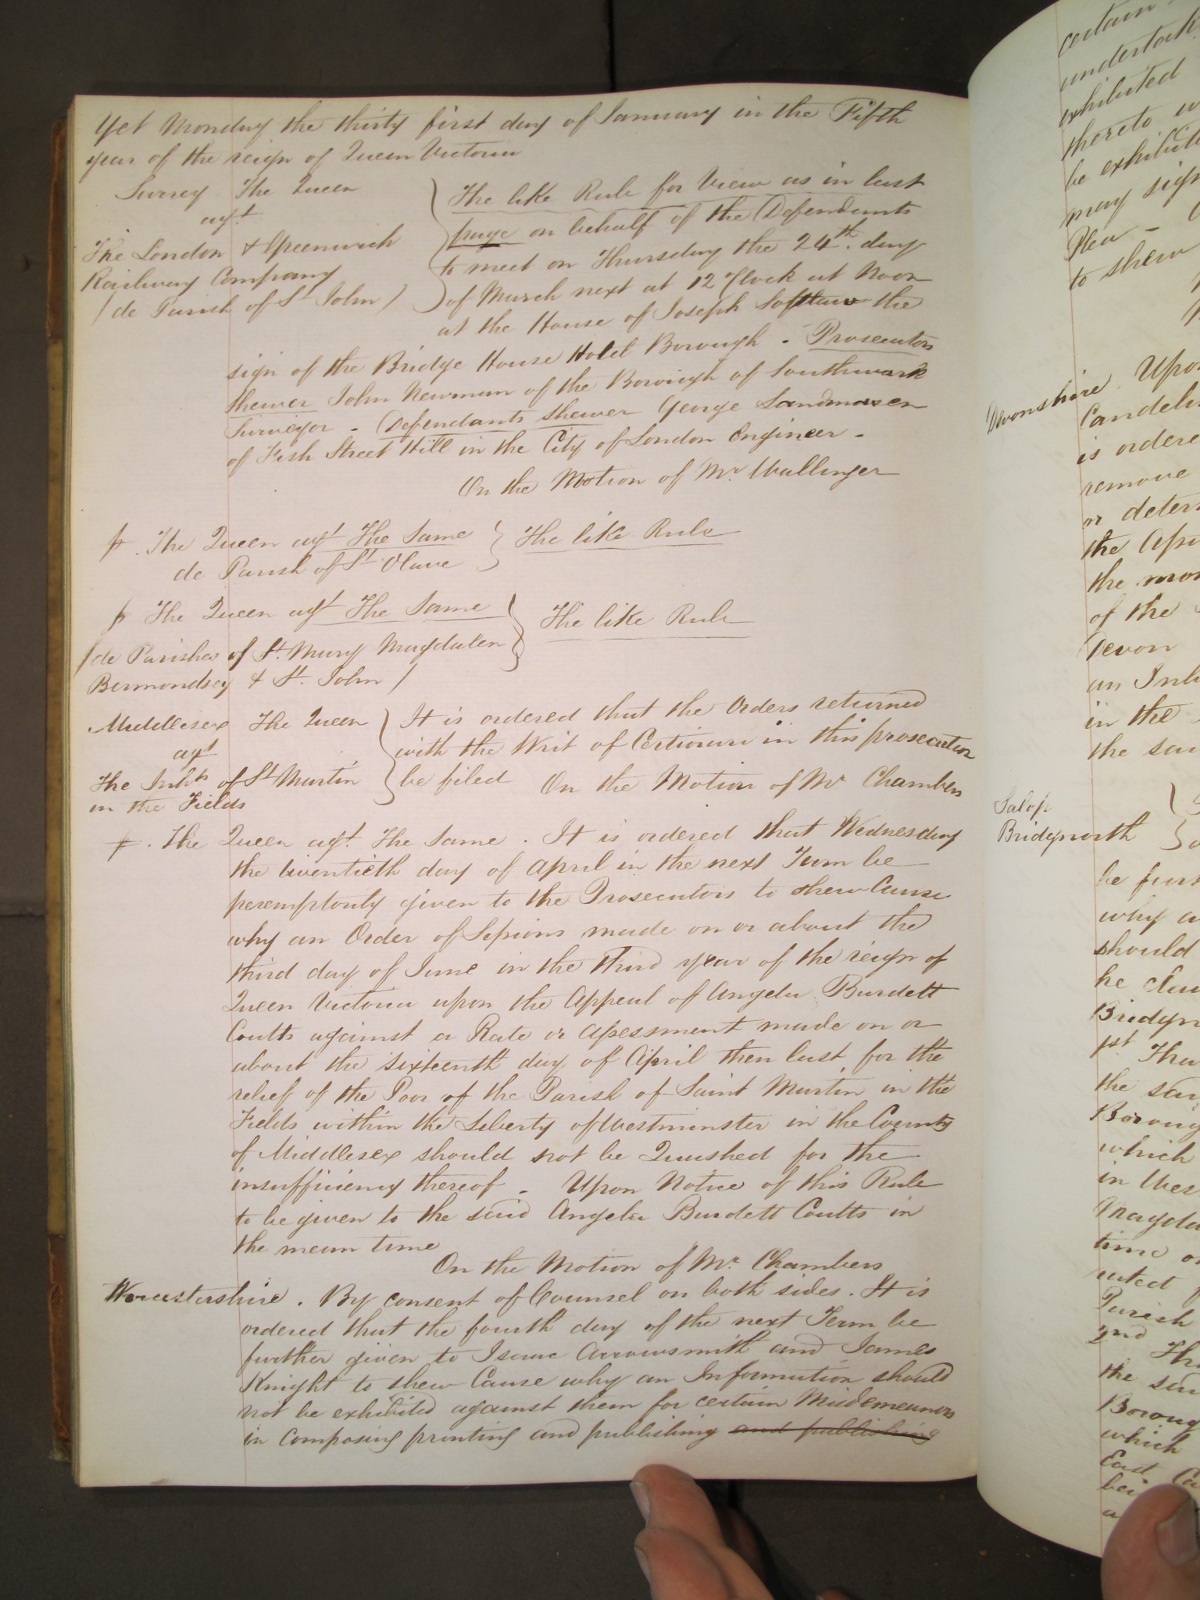 Yet Monday the thirty first day of January in the Fifth
year of the reign of Queen Victoria
Surrey The Queen
agst
The London & Greenwich
Railway Company
(de Parish of St John)
The like Rule for View as in last
page on behalf of the Defendants
to meet on Thursday the 24th day
of March next at 12 O'Clock at Noon
at the House of Joseph the
sign of the Bridge House Hotel Borough - Prosecutors
shewer John Newman of the Borough of Southwark
Surveyor - Defendants shewer George Landmann
of Fish Street Hill in the City of London Engineer -
On the Motion of Mr. Wallinger
The Queen agst The Same
de Parish of St Olave
The like Rule
The Queen agst The Same
(de Parishes of St. Mary Magdalen
Bermondsey & St. John)
The like Rule
Middlesex The Queen
agst
The Inhts of St Martin
in the Fields
It is ordered that the Orders returned
with the Writ of Certiorari in this prosecution
be filed On the Motion of Mr Chambers
The Queen agst. The Same. It is ordered that Wednesday
the twentieth day of April in the next Term be
peremptorily given to the Prosecutors to shew Cause
why an Order of Sessions made on or about the
third day of June in the third year of the reign of
Queen Victoria upon the Appeal of Angela Burdett
Coutts against a Rate or Assessment made on or
about the sixteenth day of April then last for the
relief of the Poor of the Parish of Saint Martin in the
Fields within the Liberty of Westminster in the County
of Middlesex should not be Quashed for the
insufficiency thereof - Upon Notice of this Rule
to be given to the said Angela Burdett Coutts in
the mean time
On the Motion of Mr. Chambers
Worcestershire. By consent of Counsel on both sides. It is
ordered that the fourth day of the next Term be
further given to Isaac Arrowsmith and James
Knight to shew Cause why an Information should
not be exhibited against them for certain Misdemeanors
in composing printing and publishing and publishing
certain
undertak
exhibited
thereto
be exhibite
may sign
Plea -
to shew
Devonshire Upon
is ordere
remove
or deter
the
the
of the
Devon
an Ind
in the
the sai
Salop
Bridgnorth
be furt
why a
should
he
Bridgn
1st Tha
the sai
Boroug
which
in Wes
Magdal
time o
Parish
2nd Th
the sai
Boroug
which
East Ca
bei